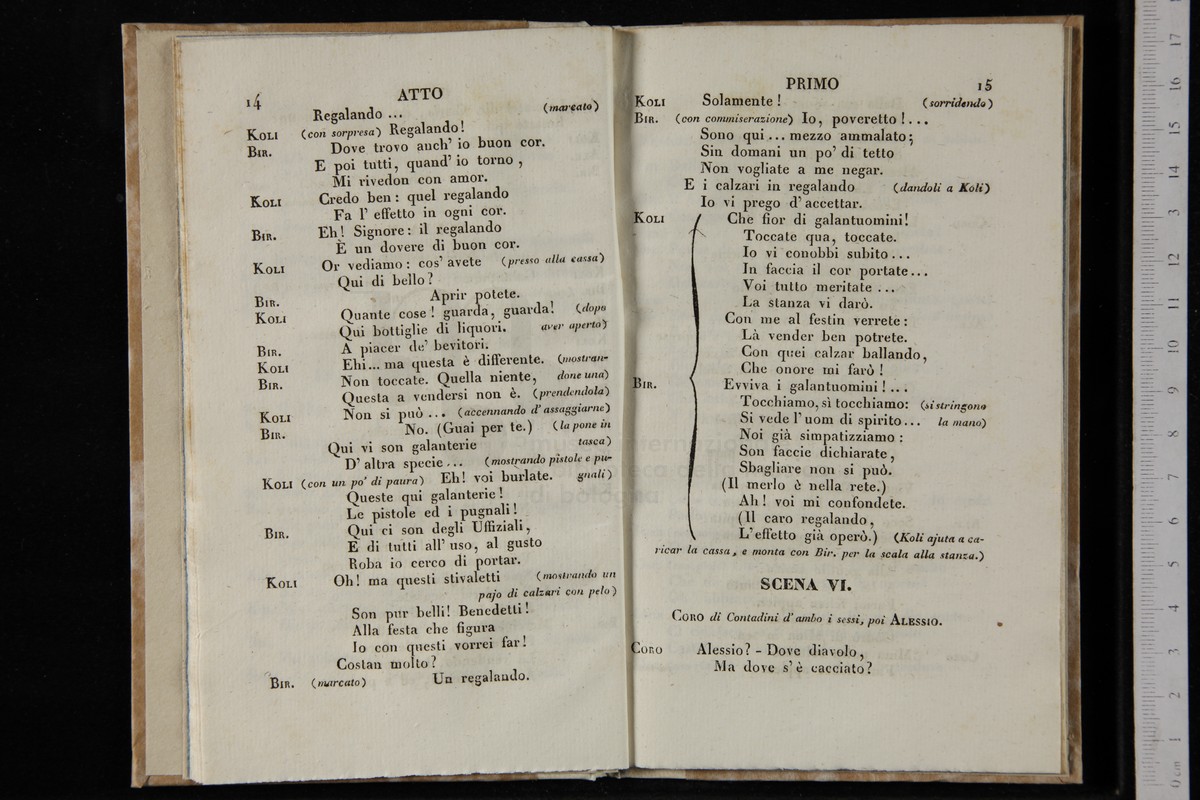 14
ATTO
Regalando ... (marcato)
KOLI (con sorpresa) Regalando!
BIR. Dove trovo anch' io buon cor.
E poi tutti, quand' io torno,
Mi rivedon con amor.
KOLI Credo ben: quel regalando
Fa l' effetto in ogni cor.
BIR. Eh! Signore: il regalando
È un dovere di buon cor.
KOLI Or vediamo: cos' avete (presso alla cassa)
Qui di bello?
BIR. Aprir potete.
KOLI Quante cose! guarda, guarda! (dopo
Qui bottiglie di liquori. aver aperto)
BIR. A piacer de' bevitori.
KOLI Ehi... ma questa è differente. (mostran-
BIR. Non toccate. Quella niente, done una)
Questa a vendersi non è. (prendendola)
KOLI Non si può ... (accennando d' assaggiarne)
BIR. No. (Guai per te.) (la pone in
Qui vi son galanterie tasca)
D' altra specie ... (mostrando pistole e pu-
KOLI (con un po' di paura) Eh! voi burlate. gnali)
Queste qui galanterie!
Le pistole ed i pugnali!
BIR. Qui ci son degli Uffiziali,
E di tutti all' uso, al gusto
Roba io cerco di portar.
KOLI Oh! ma questi stivaletti (mostrando un
pajo di calzari con pelo)
Son pur belli! Benedetti!
Alla festa che figura
Io con questi vorrei far!
Costan molto?
BIR. (marcato) Un regalando.
PRIMO
15
KOLI Solamente! (sorridendo)
BIR. (con commiserazione) Io, poveretto!...
Sono qui... mezzo ammalato;
Sin domani un po' di tetto
Non vogliate a me negar.
E i calzari in regalando (dandoli a Koli)
Io vi prego d' accettar.
KOLI Che fior di galantuomini!
Toccate qua, toccate.
Io vi conobbi subito...
In faccia il cor portate...
Voi tutto meritate ...
La stanza vi darò.
Con me al festin verrete:
Là vender ben potrete.
Con quei calzar ballando,
Che onore mi farò!
BIR. Evviva i galantuomini!...
Tocchiamo, sì tocchiamo: (si stringono
Si vede l' uom di spirito... la mano)
Noi già simpatizziamo:
Son faccie dichiarate,
Sbagliare non si può.
(Il merlo è nella rete.)
Ah! voi mi confondete.
(Il caro regalando,
L' effetto già operò.) (Koli ajuta a ca-
ricar la cassa, e monta con Bir. per la scala alla stanza.)
SCENA VI.
CORO di Contadini d' ambo i sessi, poi ALESSIO.
CORO Alessio? - Dove diavolo,
Ma dove s' è cacciato?